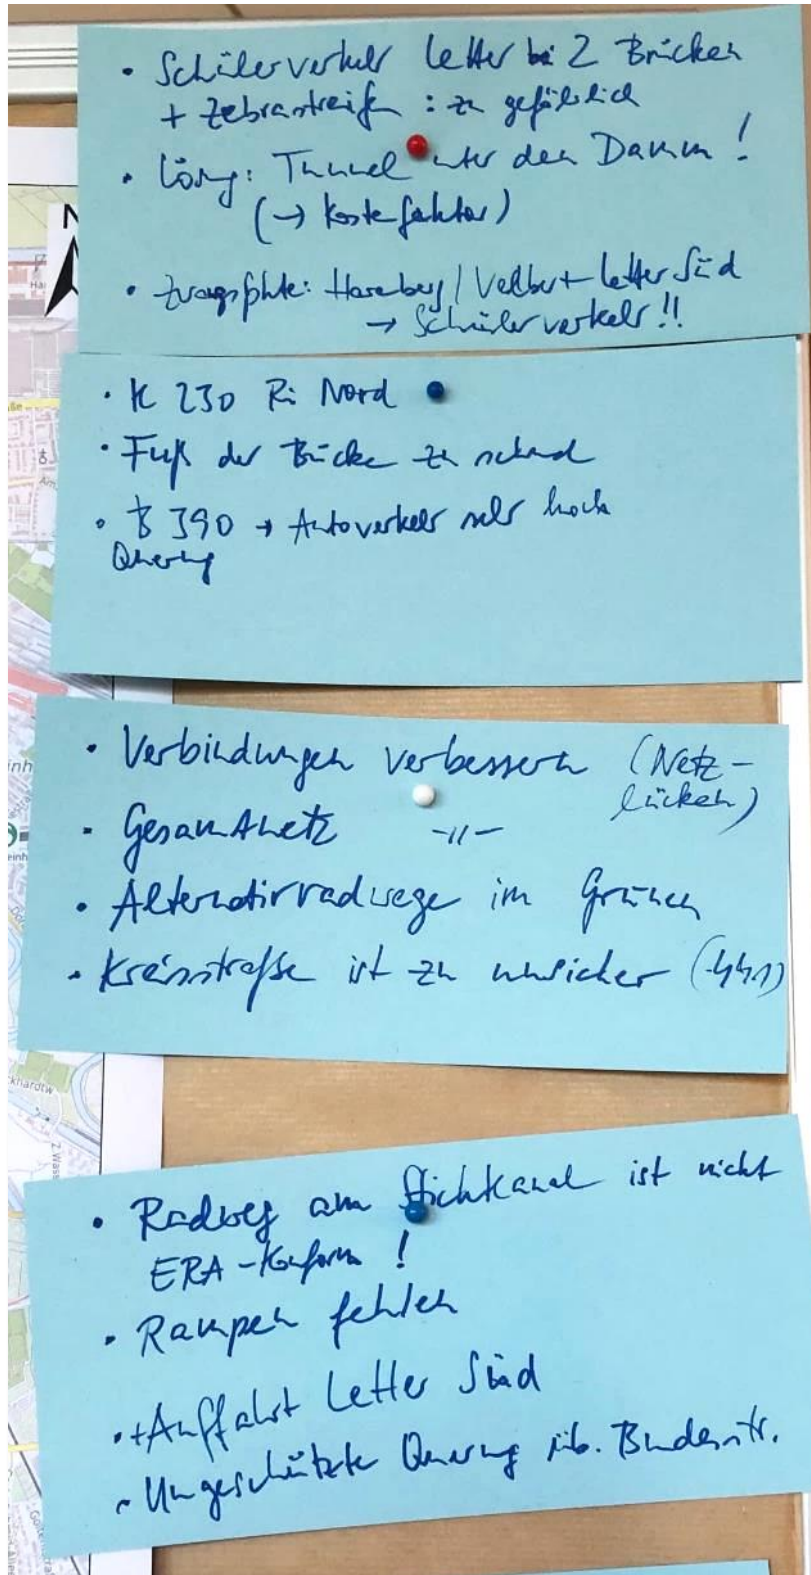 • Schülerverkehr Letter bei 2 Brücken
+ Zebrastreifen : zu gefährlich
• Lösung: Tunnel unter den Damm !
(→ Kostenfaktor)
• Harenberg / Velber + Letter Süd
→ Schülerverkehr !!
• K 230 Ri Nord
• Fuß der Brücke zu
• B 390 → Autoverkehr sehr hoch
Querung
• Verbindungen verbessern (Netz-
lücken)
• Gesamtnetz -//-
• Alternativradwege im Grünen
• Kreisstraße ist zu unsicher (441)
• Radweg am Stichkanal ist nicht
ERA-Konform !
• Rampen fehlen
• + Auffahrt Letter Süd
• Ungeschützte Querung üb. Bundesstr.
N